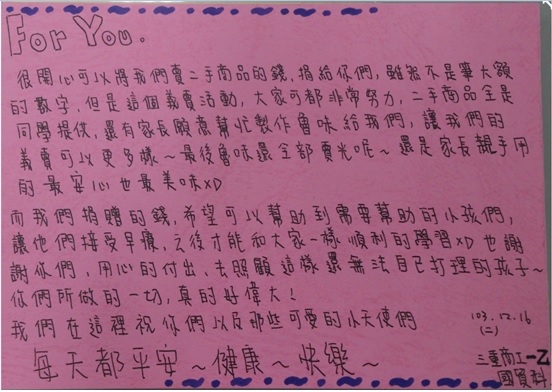 For You.
很開心可以將我們賣二手商品的錢,捐給你們,雖然不是筆大額
的數字,但是這個義賣活動,大家可都非常努力,二手商品全是
同學提供,還有家長願意幫忙製作魯味給我們,讓我們的
義賣可以更多樣~最後魯味還全部賣光呢~還是家長親手用
的最安心也最美味XD
而我們捐贈的錢,希望可以幫助到需要幫助的小孩們,
讓他們接受早療,之後才能和大家一樣順利的學習XD也謝
謝你們,用心的付出,去照顧這樣還無法自己打理的孩子~
你們所做的一切,真的好偉大!
我們在這裡祝你們以及那些可愛的小天使們
每天都平安~健康~快樂~
103.12.16
(二)
三重商工一乙
國貿科